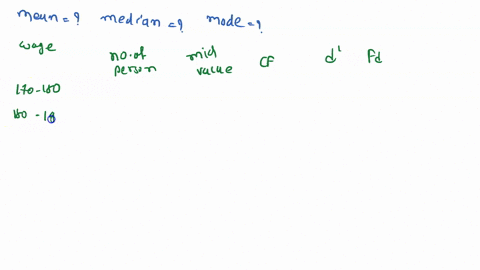 mean = ? median = ? mode = ?
wage no. of person mid value CF d' Fd
170-180
180 - 18